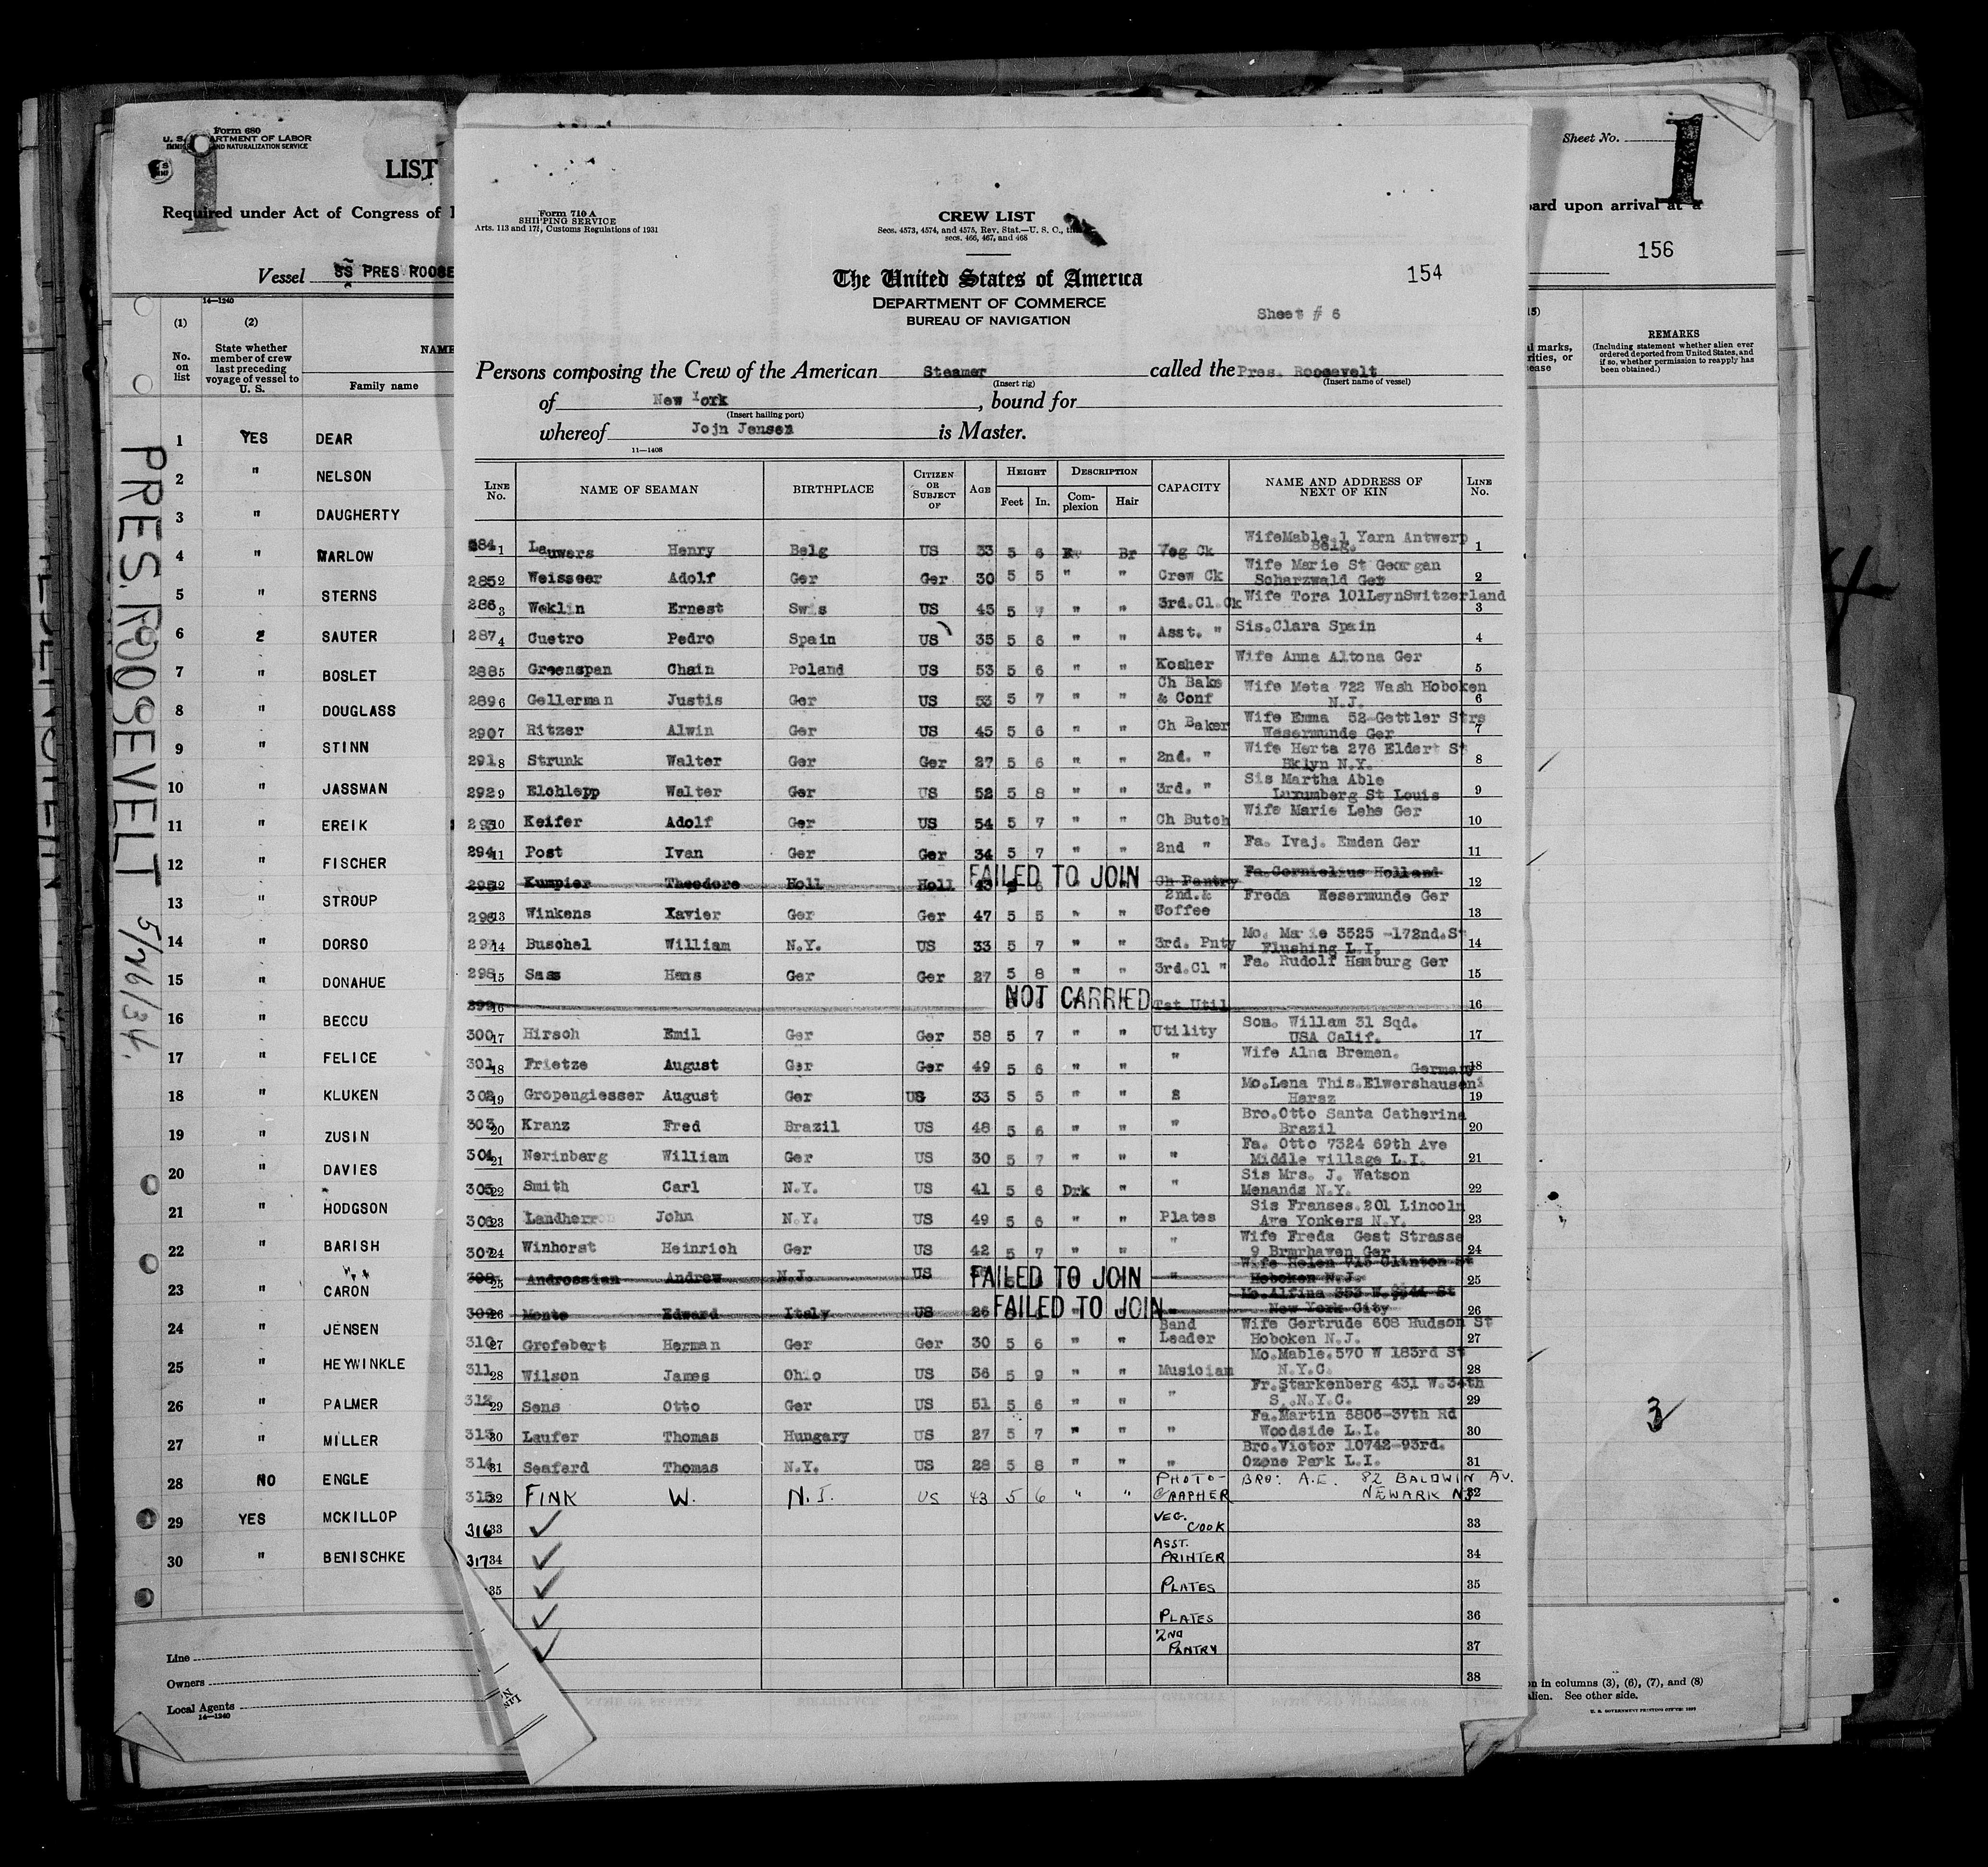 Form 680
U. S. DEPARTMENT OF LABOR
IMMIGRATION AND NATURALIZATION SERVICE
1
LIST
Required under Act of Congress of
Vessel SS PRES ROOSE
14—1240
(1) (2)
No. on list
State whether member of crew last preceding voyage of vessel to U. S.
NAME
Family name
1 YES DEAR
2 " NELSON
3 " DAUGHERTY
4 " MARLOW
5 " STERNS
6 " SAUTER
7 " BOSLET
8 " DOUGLASS
9 " STINN
10 " JASSMAN
11 " EREIK
12 " FISCHER
13 " STROUP
14 " DORSO
15 " DONAHUE
16 " BECCU
17 " FELICE
18 " KLUKEN
19 " ZUSIN
20 " DAVIES
21 " HODGSON
22 " BARISH
23 " CARON
24 " JENSEN
25 " HEYWINKLE
26 " PALMER
27 " MILLER
28 NO ENGLE
29 YES MCKILLOP
30 " BENISCHKE
Line
Owners
Local Agents
14—1240
PRES. ROOSEVELT 5/26/34.
Form 710 A
SHIPPING SERVICE
Arts. 113 and 171, Customs Regulations of 1931
CREW LIST
Secs. 4573, 4574, and 4575, Rev. Stat.—U. S. C.,
secs. 466, 467, and 468
The United States of America
DEPARTMENT OF COMMERCE
BUREAU OF NAVIGATION
154
Sheet # 6
Persons composing the Crew of the American Steamer called the Pres. Roosevelt
(Insert rig) (Insert name of vessel)
of New York, bound for
(Insert hailing port)
whereof Jojn Jensen is Master.
11—1408
LINE No. NAME OF SEAMAN BIRTHPLACE CITIZEN OR SUBJECT OF AGE HEIGHT Feet In. DESCRIPTION Complexion Hair CAPACITY NAME AND ADDRESS OF NEXT OF KIN LINE No.
284 1 Lauwers Henry Belg US 33 5 6 Br Veg Ck WifeMable 1 Yarn Antwerp Belg. 1
285 2 Weisser Adolf Ger Ger 30 5 5 " " Crew Ck Wife Marie St Georgan Scharzwald Ger 2
286 3 Weklin Ernest Swis US 45 5 7 " " 3rd.Cl.Ck Wife Tora 101LeynSwitzerland 3
287 4 Cuetro Pedro Spain US 35 5 6 " " Asst. " Sis.Clara Spain 4
288 5 Greenspan Chain Poland US 53 5 6 " " Kosher Wife Anna Altona Ger 5
289 6 Gellerman Justis Ger US 53 5 7 " " Ch Bake & Conf Wife Meta 722 Wash Hoboken N.J. 6
290 7 Ritzer Alwin Ger US 45 5 6 " " Ch Baker Wife Emma 52 Gettler Strs Wesermunde Ger 7
291 8 Strunk Walter Ger Ger 27 5 6 " " 2nd. " Wife Herta 276 Eldert St Bklyn N.Y. 8
292 9 Elchlepp Walter Ger US 52 5 8 " " 3rd. " Sis Martha Able Luxumberg St Louis 9
293 10 Keifer Adolf Ger US 54 5 7 " " Ch Butch Wife Marie Lehe Ger 10
294 11 Post Ivan Ger Ger 34 5 7 " " 2nd " Fa. Ivaj. Emden Ger 11
295 12 Kumpier Theodore Holl Holl 43 FAILED TO JOIN Ch Pantry Fa.Cornielius Holland 12
296 13 Winkens Xavier Ger Ger 47 5 5 " " 2nd.& Coffee Freda Wesermunde Ger 13
297 14 Buschel William N.Y. US 33 5 7 " " 3rd. Pnty Mo. Marie 3525 -172nd.St Flushing L.I. 14
298 15 Sass Hans Ger Ger 27 5 8 " " 3rd.Cl " Fa. Rudolf Hamburg Ger 15
299 16 NOT CARRIED Util 16
300 17 Hirsch Emil Ger Ger 58 5 7 " " Utility Son. Willam 31 Sqd. USA Calif. 17
301 18 Frietze August Ger Ger 49 5 6 " " " Wife Alna Bremen. Germany 18
302 19 Gropengiesser August Ger US 33 5 5 " " Mo.Lena This.Elwershausen Haraz 19
303 20 Kranz Fred Brazil US 48 5 6 " " " Bro.Otto Santa Catherina Brazil 20
304 21 Nerinberg William Ger US 30 5 7 " " " Fa. Otto 7324 69th Ave Middle village L.I. 21
305 22 Smith Carl N.Y. US 41 5 6 Drk " " Sis Mrs. J. Watson Menands N.Y. 22
306 23 Landherr John N.Y. US 49 5 6 " " Plates Sis Franses.201 Lincoln Ave Yonkers N.Y. 23
307 24 Winhorst Heinrich Ger US 42 5 7 " " " Wife Freda Gest Strasse 9 Brmrhaven Ger 24
308 25 Androssian Andrew N.J. US FAILED TO JOIN " Wife Helen Clinton St Hoboken N.J. 25
309 26 Monte Edward Italy US 26 FAILED TO JOIN " Mo.Alfina 353 W. St New York City 26
310 27 Grofebert Herman Ger Ger 30 5 6 " " Band Leader Wife Gertrude 608 Hudson St Hoboken N.J. 27
311 28 Wilson James Ohio US 36 5 9 " " Musician Mo.Mable.570 W 183rd St N.Y.C. 28
312 29 Sens Otto Ger US 51 5 6 " " " Fr.Starkenberg 431 W.34th S.N.Y.C. 29
313 30 Laufer Thomas Hungary US 27 5 7 " " " Fa.Martin 6806-37th Rd Woodside L.I. 30
314 31 Seaferd Thomas N.Y. US 28 5 8 " " " Bro.Victor 10742-93rd. Ozone Park L.I. 31
315 32 FINK W. N.J. US 43 5 6 " " PHOTO-GRAPHER BRO: A.E. 82 BALDWIN AV. NEWARK NJ 32
316 33 VEG. COOK 33
317 34 ASST. PRINTER 34
35 PLATES 35
36 PLATES 36
37 2ND PANTRY 37
38
Sheet No.
1
oard upon arrival at a
156
REMARKS
(Including statement whether alien ever ordered deported from United States, and if so, whether permission to reapply has been obtained.)
3
n in columns (3), (6), (7), and (8)
alien. See other side.